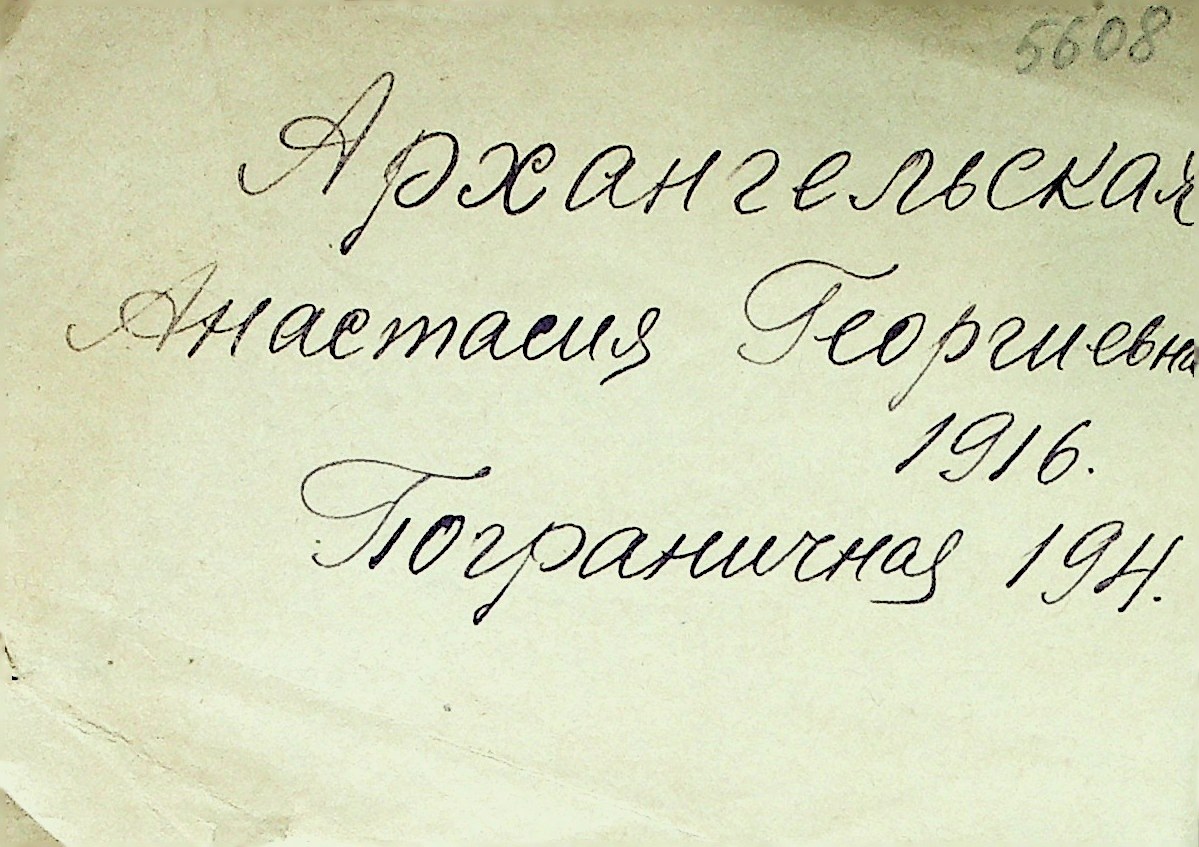 5608
Архангельская
Анастасия Георгиевна
1916.
Пограничная 194.